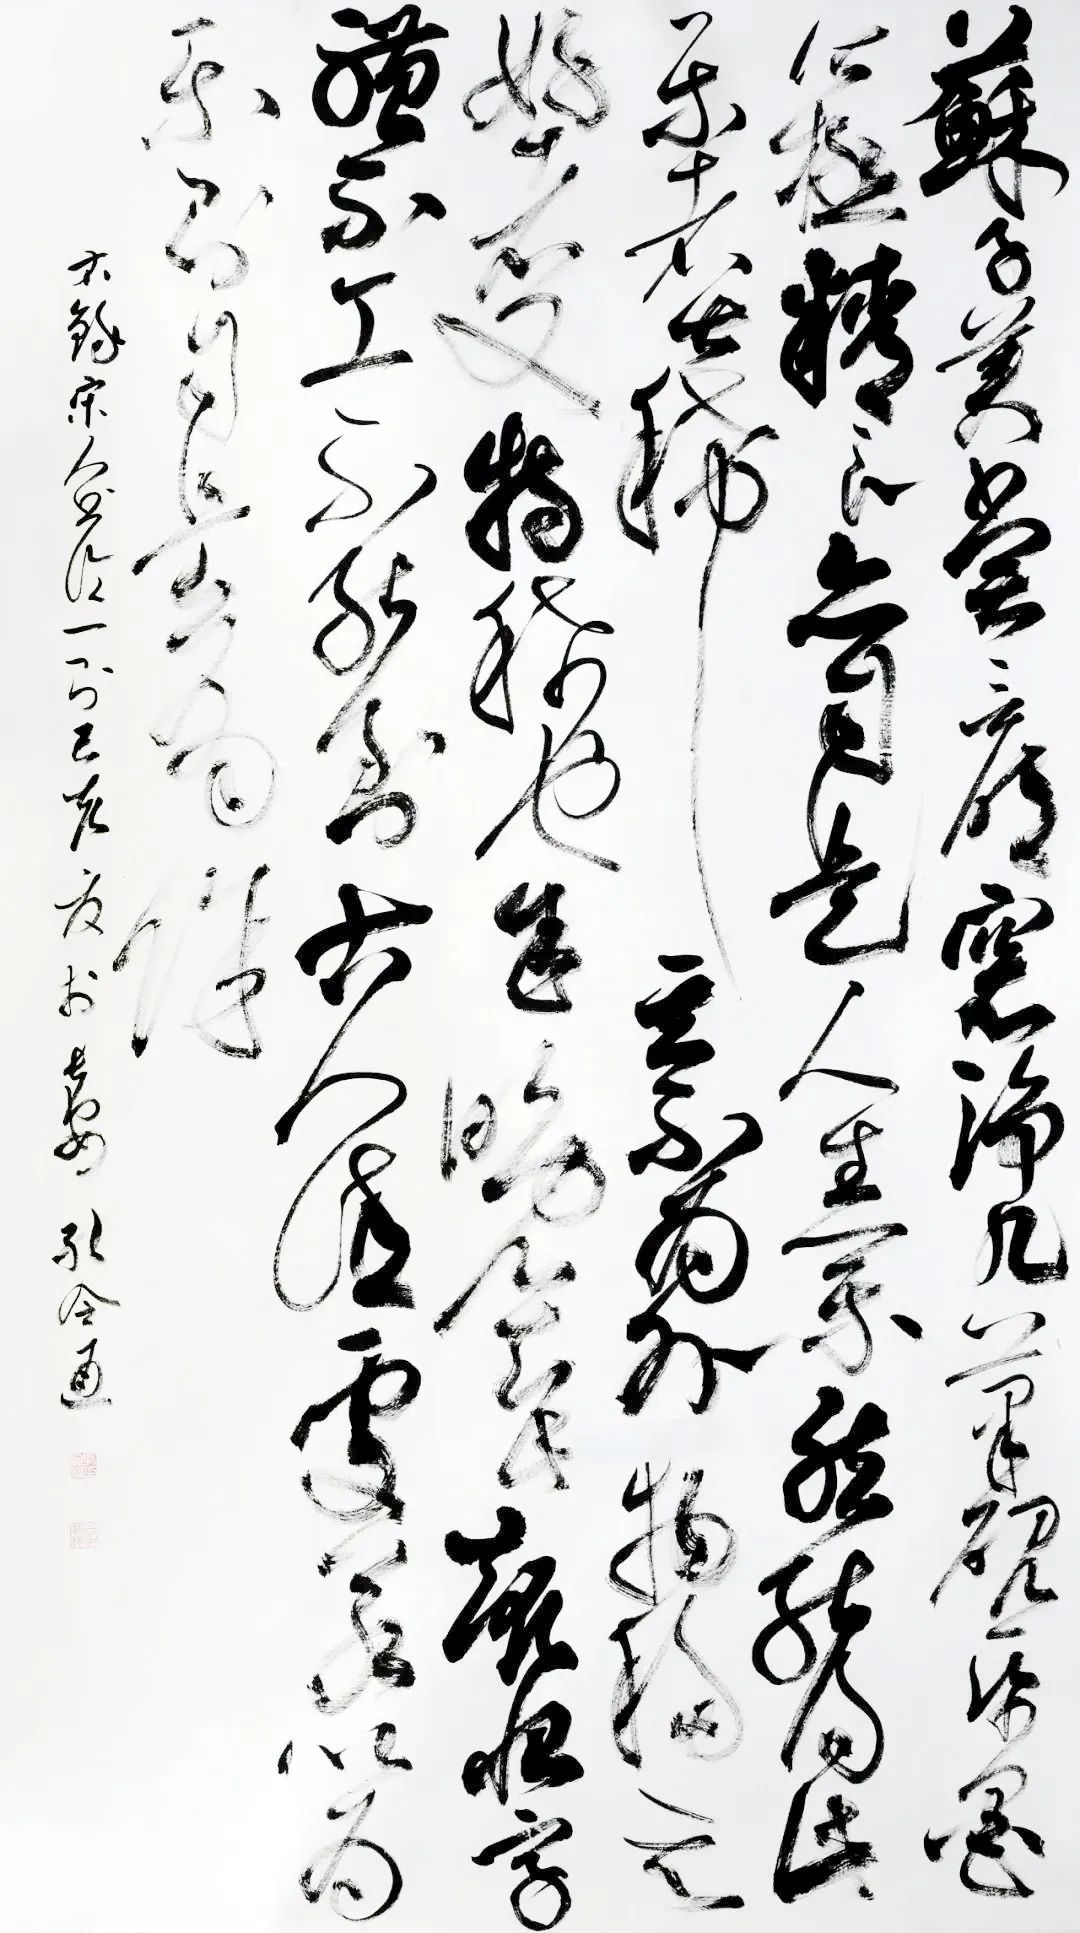 蘇子美嘗言明窗淨几筆硯紙墨
皆極精良亦自是人生一樂然能得此
樂者甚稀其不為外物移其
好者又特稀也余晚知此趣恨字
體不工不能到古人佳處若以為
樂則自是有餘
右錄宋人書論一則己亥夏於